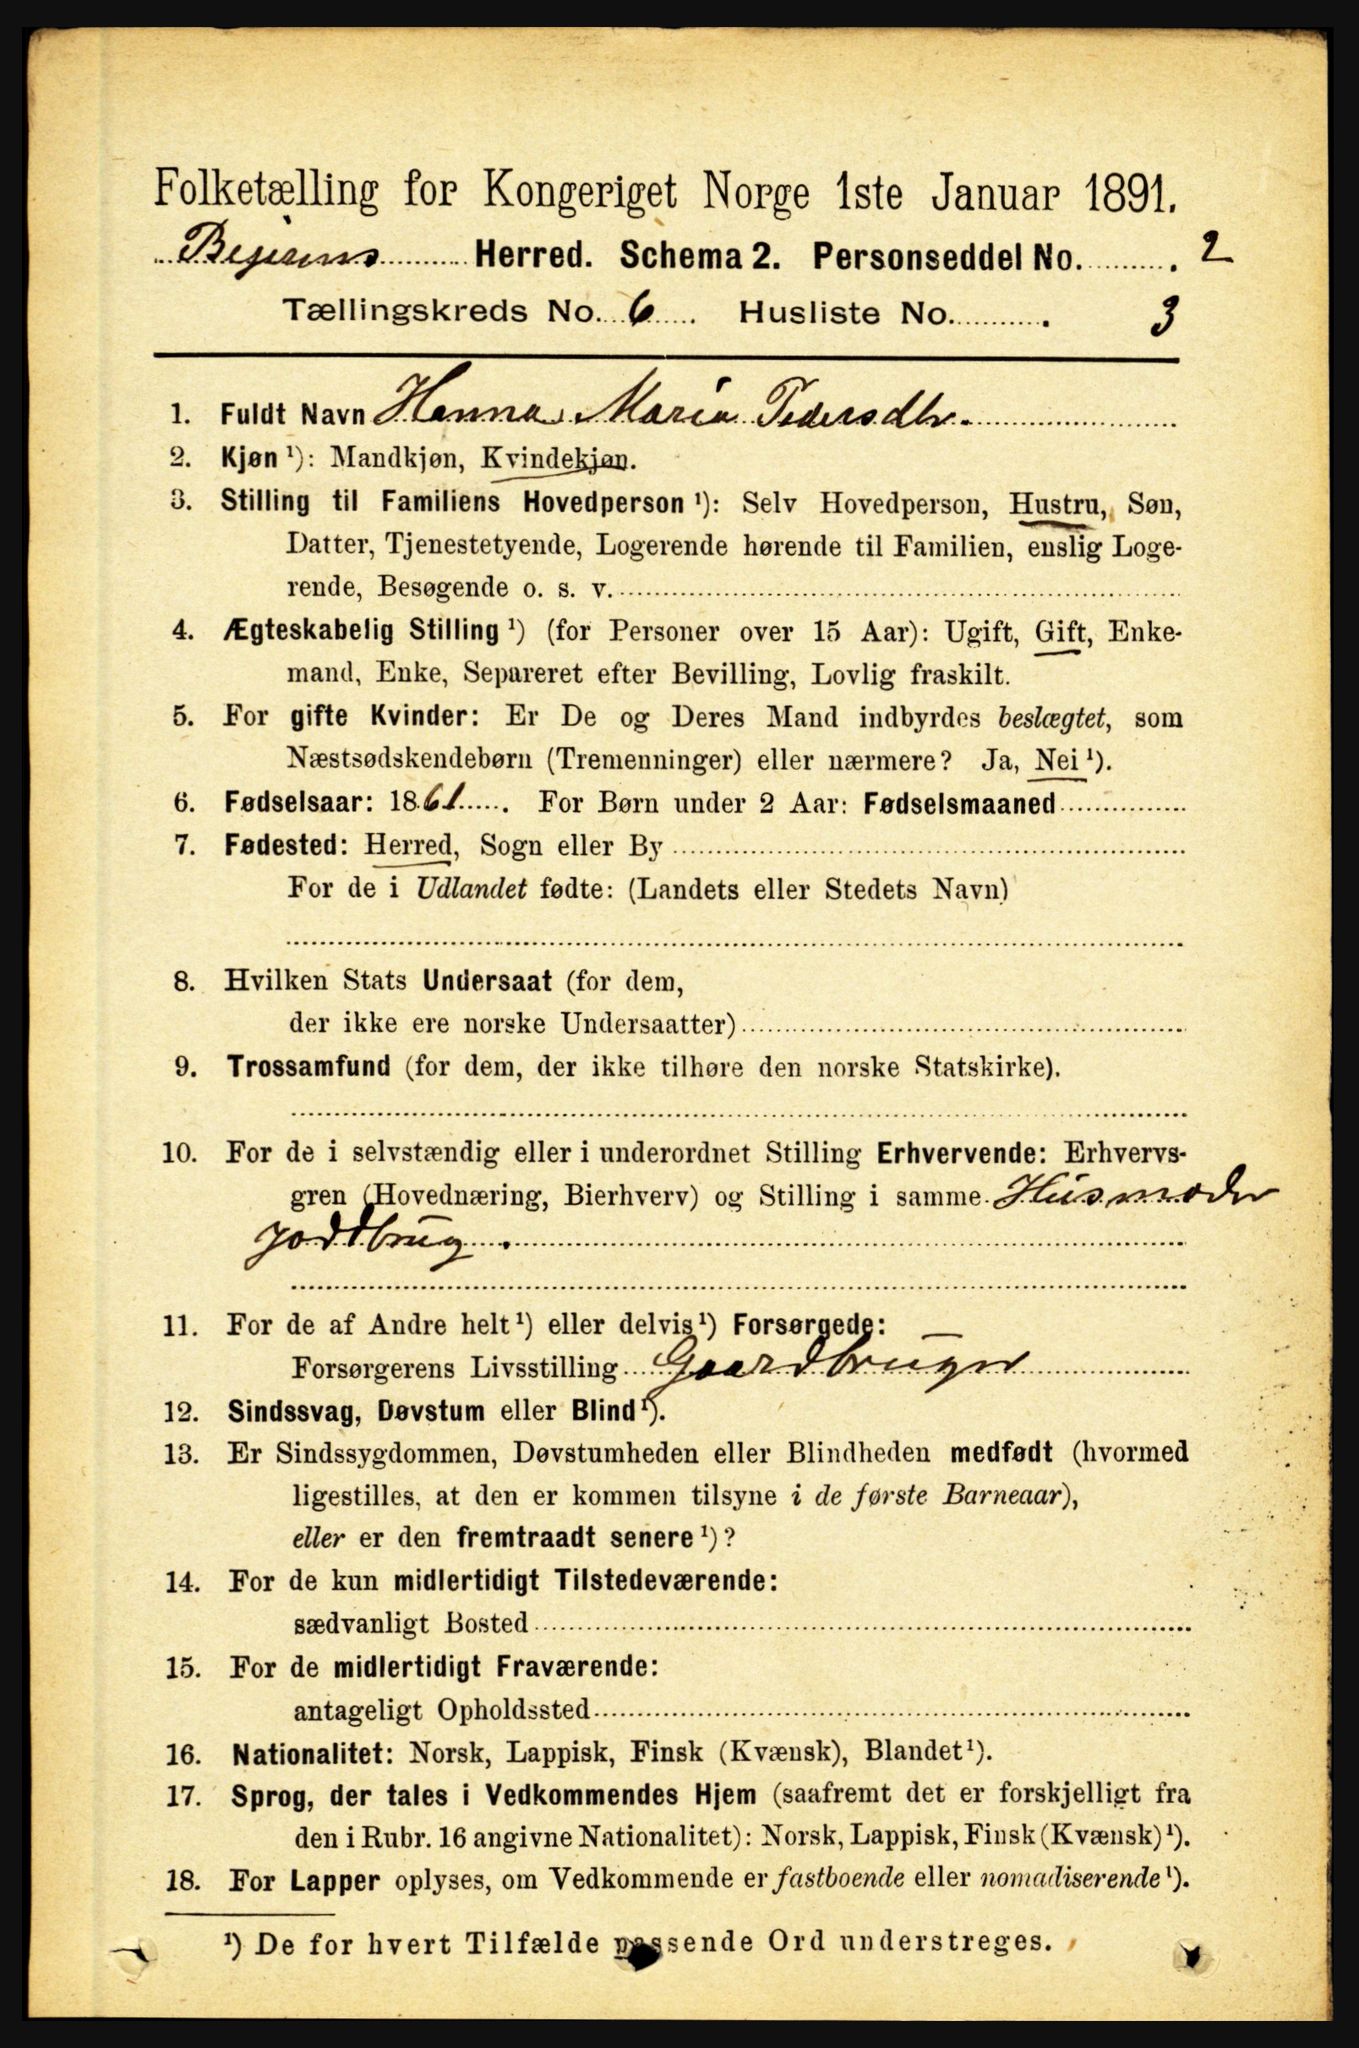 Folketælling for Kongeriget Norge 1ste Januar 1891.
Bejerens Herred. Schema 2. Personseddel No. 2
Tællingskreds No. 6 Husliste No. 3
1. Fuldt Navn Hanna Maria Pedersdtr.
2. Kjøn ¹): Mandkjøn, Kvindekjøn.
3. Stilling til Familiens Hovedperson ¹): Selv Hovedperson, Hustru, Søn,
Datter, Tjenestetyende, Logerende hørende til Familien, enslig Loge-
rende, Besøgende o. s. v.
4. Ægteskabelig Stilling ¹) (for Personer over 15 Aar): Ugift, Gift, Enke-
mand, Enke, Separeret efter Bevilling, Lovlig fraskilt.
5. For gifte Kvinder: Er De og Deres Mand indbyrdes beslægtet, som
Næstsødskendebørn (Tremenninger) eller nærmere? Ja, Nei ¹).
6. Fødselsaar: 1861. For Børn under 2 Aar: Fødselsmaaned
7. Fødested: Herred, Sogn eller By
For de i Udlandet fødte: (Landets eller Stedets Navn)
8. Hvilken Stats Undersaat (for dem,
der ikke ere norske Undersaatter)
9. Trossamfund (for dem, der ikke tilhøre den norske Statskirke).
10. For de i selvstændig eller i underordnet Stilling Erhvervende: Erhvervs-
gren (Hovednæring, Bierhverv) og Stilling i samme Husmoder
jordbrug.
11. For de af Andre helt ¹) eller delvis ¹) Forsørgede:
Forsørgerens Livsstilling Gaardbruger
12. Sindssvag, Døvstum eller Blind ¹).
13. Er Sindssygdommen, Døvstumheden eller Blindheden medfødt (hvormed
ligestilles, at den er kommen tilsyne i de første Barneaar),
eller er den fremtraadt senere ¹)?
14. For de kun midlertidigt Tilstedeværende:
sædvanligt Bosted
15. For de midlertidigt Fraværende:
antageligt Opholdssted
16. Nationalitet: Norsk, Lappisk, Finsk (Kvænsk), Blandet ¹).
17. Sprog, der tales i Vedkommendes Hjem (saafremt det er forskjelligt fra
den i Rubr. 16 angivne Nationalitet): Norsk, Lappisk, Finsk (Kvænsk) ¹).
18. For Lapper oplyses, om Vedkommende er fastboende eller nomadiserende ¹).
¹) De for hvert Tilfælde passende Ord understreges.